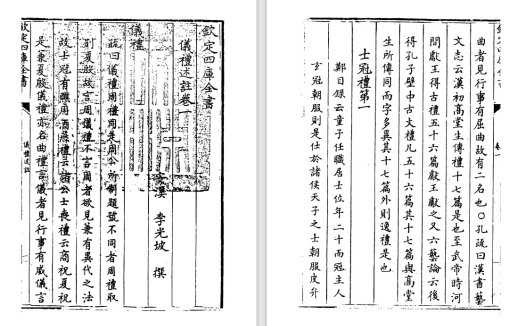 欽定四庫全書
儀禮述註卷一
安溪 李光坡 撰
儀禮
疏曰儀禮周禮同是周公所制題號不同者周禮取
別夏殷故言周儀禮不言周者欲見兼有異代之法
故士冠有醮用酒燕禮云諸公士喪禮云商祝夏祝
是兼夏殷儀禮亦名曲禮言儀者見行事有威儀言
欽定四庫全書
儀禮述註
卷一
曲者見行事有屈曲故有二名也○孔疏曰漢書藝
文志云漢初高堂生傳禮十七篇是也至武帝時河
間獻王得古禮五十六篇獻王獻之又六藝論云後
得孔子壁中古文禮凡五十六篇其十七篇與高堂
生所傳同而字多異其十七篇外則逸禮是也
士冠禮第一
鄭目錄云童子任職居士位年二十而冠主人
玄冠朝服則是仕於諸侯天子之士朝服皮弁